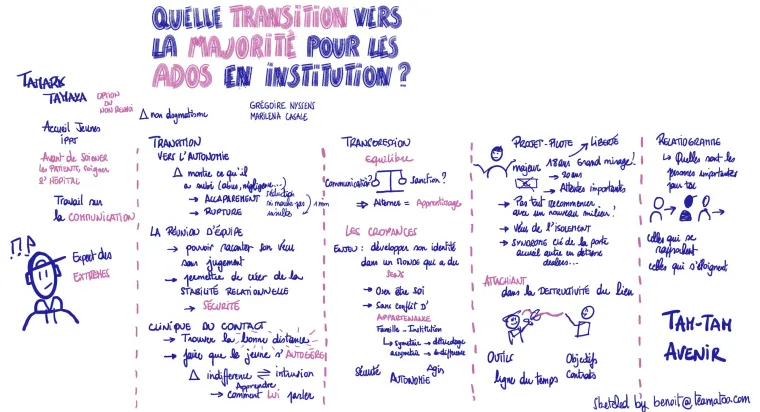 QUELLE TRANSITION VERS
LA MAJORITÉ POUR LES
ADOS EN INSTITUTION ?
GRÉGOIRE NYSSENS
MARILENA CASALE
TAMARIS
TAMAYA
OPTION
DU
NON RENVOI
△ non dogmatisme
Accueil Jeunes
IPPJ
Avant de SOIGNER
les PATIENTS, soigner
l'HÔPITAL
Travail sur
la COMMUNICATION
Expert des
EXTRÊMES
TRANSITION
VERS L'AUTONOMIE
△ montre ce qu'il
a subi (abus, négligence...)
→ ACCAPAREMENT
→ RUPTURE
séduction
invisible
LA RÉUNION D'ÉQUIPE
→ pouvoir raconter son vécu
sans jugement
→ permettre de créer de la
STABILITÉ RELATIONNELLE
→ SÉCURITÉ
CLINIQUE DU CONTACT
→ Trouver la bonne distance
→ faire que le jeune s'AUTOGÈRE
△ indifférence ⇌ intrusion
Apprendre
→ comment LUI parler
TRANSGRESSION
Equilibre
Communication?
Sanction?
→ Alternes = Apprentissage
LES CROYANCES
ENJEU : développer son identité
dans un MONDE qui a du
SENS
→ Oser être SOI
→ Sans conflit D'
APPARTENANCE
Famille - Institution
↳ symétrie → détricotage
asymétrie → différence
Sécurité
Agir
AUTONOMIE
PROJET-PILOTE
LIBERTÉ
majeur
18 ans Grand mirage!
→ 20 ans
→ Attentes importantes
→ Pas tout recommencer
avec un nouveau milieu!
→ Vécu de l'ISOLEMENT
→ SYNDROME clé de la porte
accueil autre en dehors
dealers...
ATTACHANT
dans la DESTRUCTIVITÉ du lien
OUTILS
ligne du temps
Objectifs
Contrats
RELATIOGRAMME
↳ Quelles sont les
personnes importantes
pour toi
celles qui se
rapprochent
celles qui s'éloignent
TAM-TAM
AVENIR
sketched by benoit@teamatoo.com